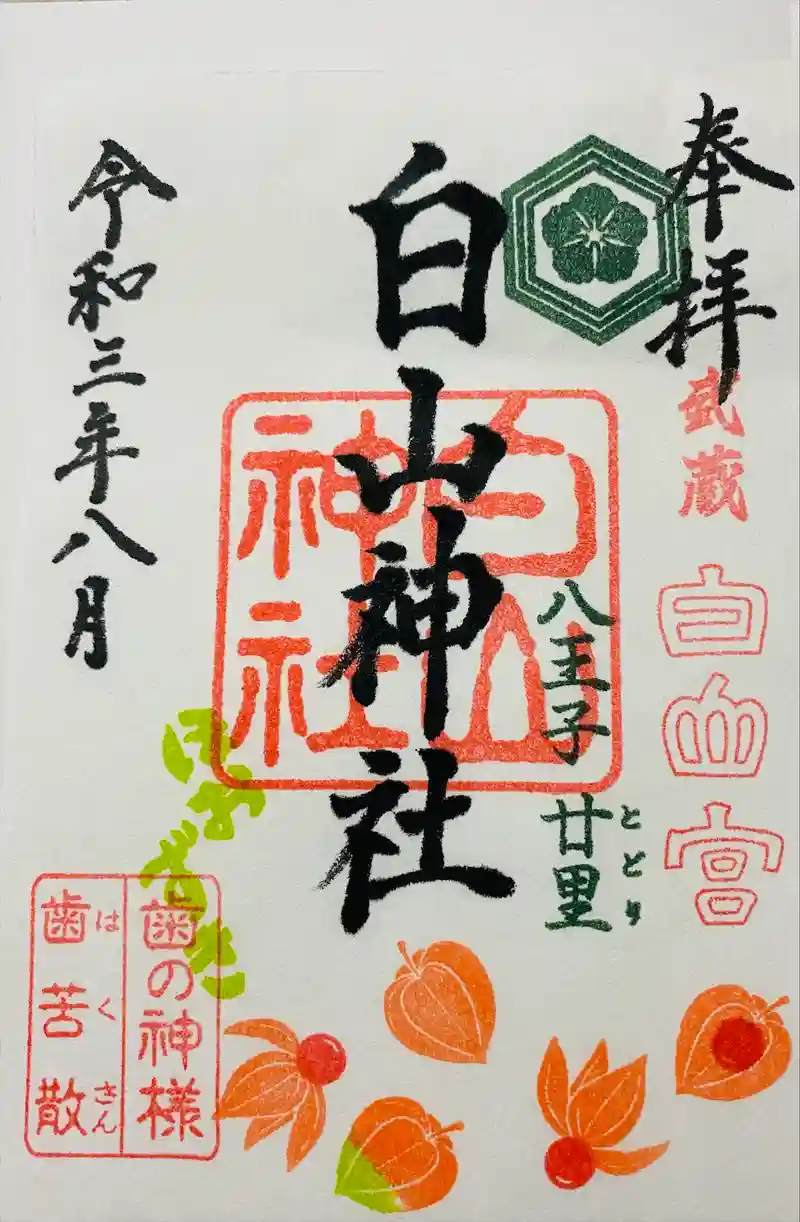 奉拝
武蔵
白山宮
八王子 廿里
ととり
白山神社
白山
神社
令和三年八月
ほおずき
歯の神様
歯苦散
はくさん